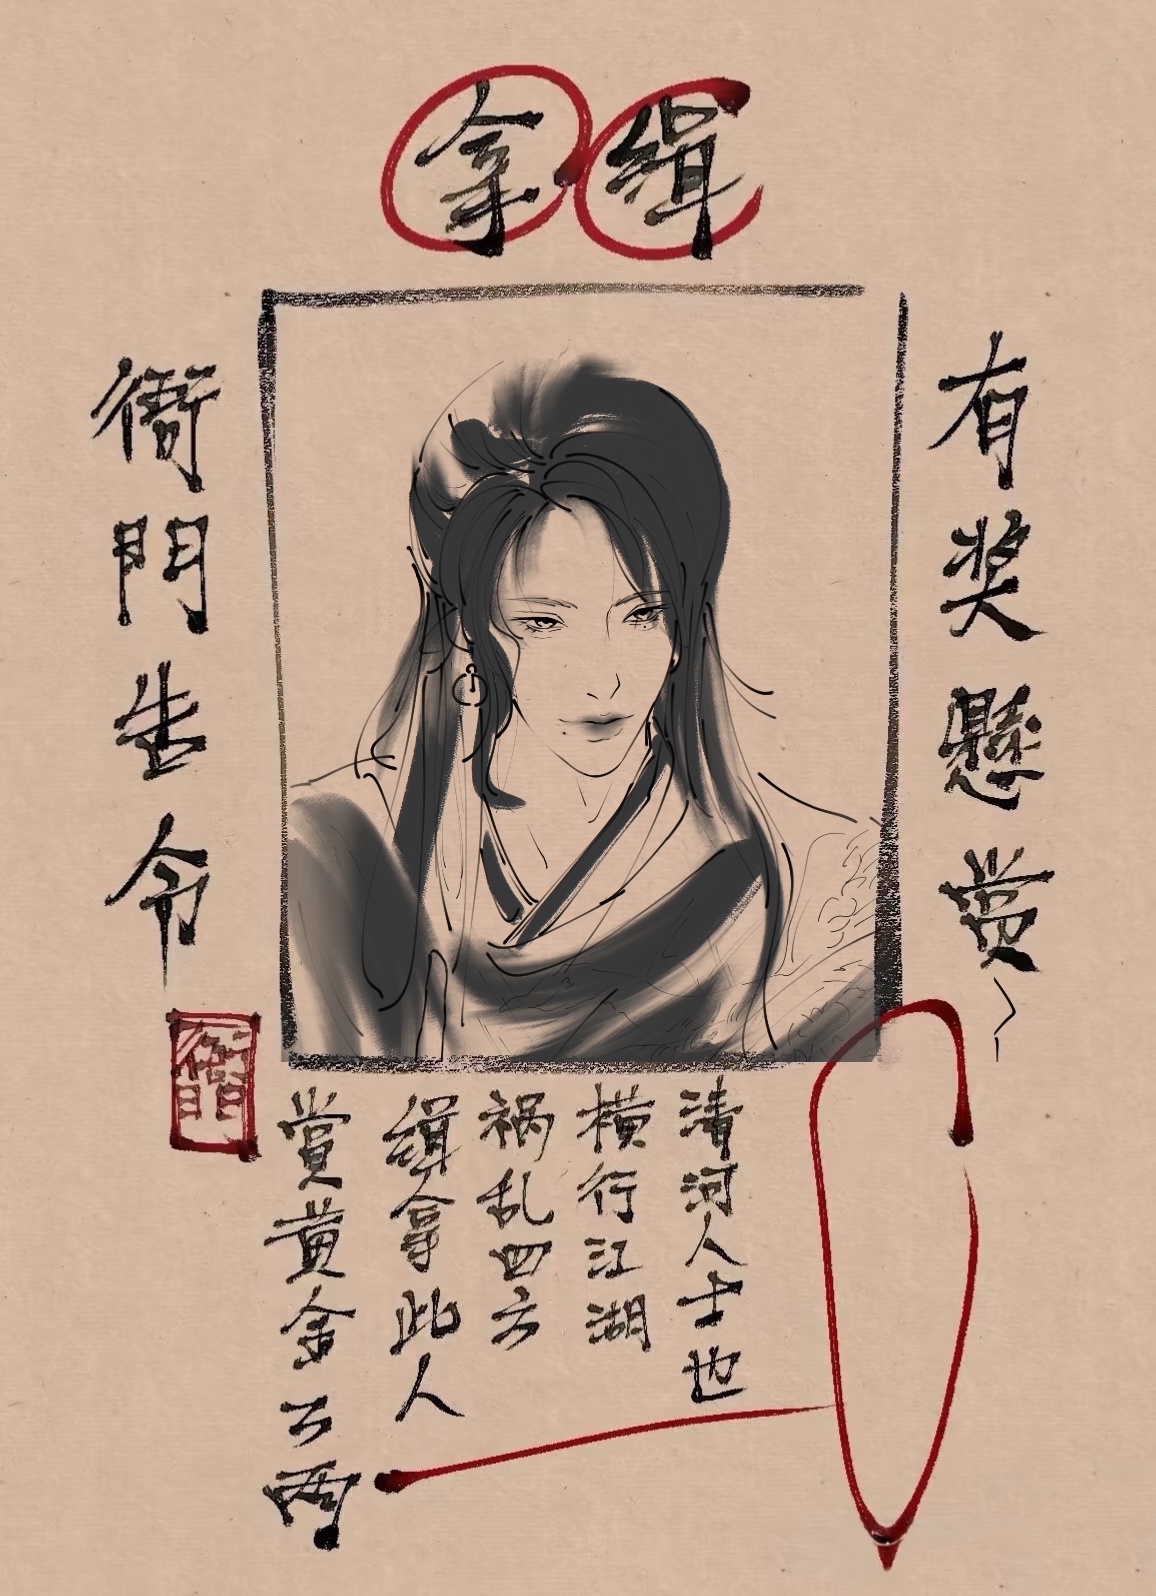 缉拿
有奖懸赏
清河人士也
横行江湖
祸乱四方
缉拿此人
赏黄金万兩
衙門告令
衙門